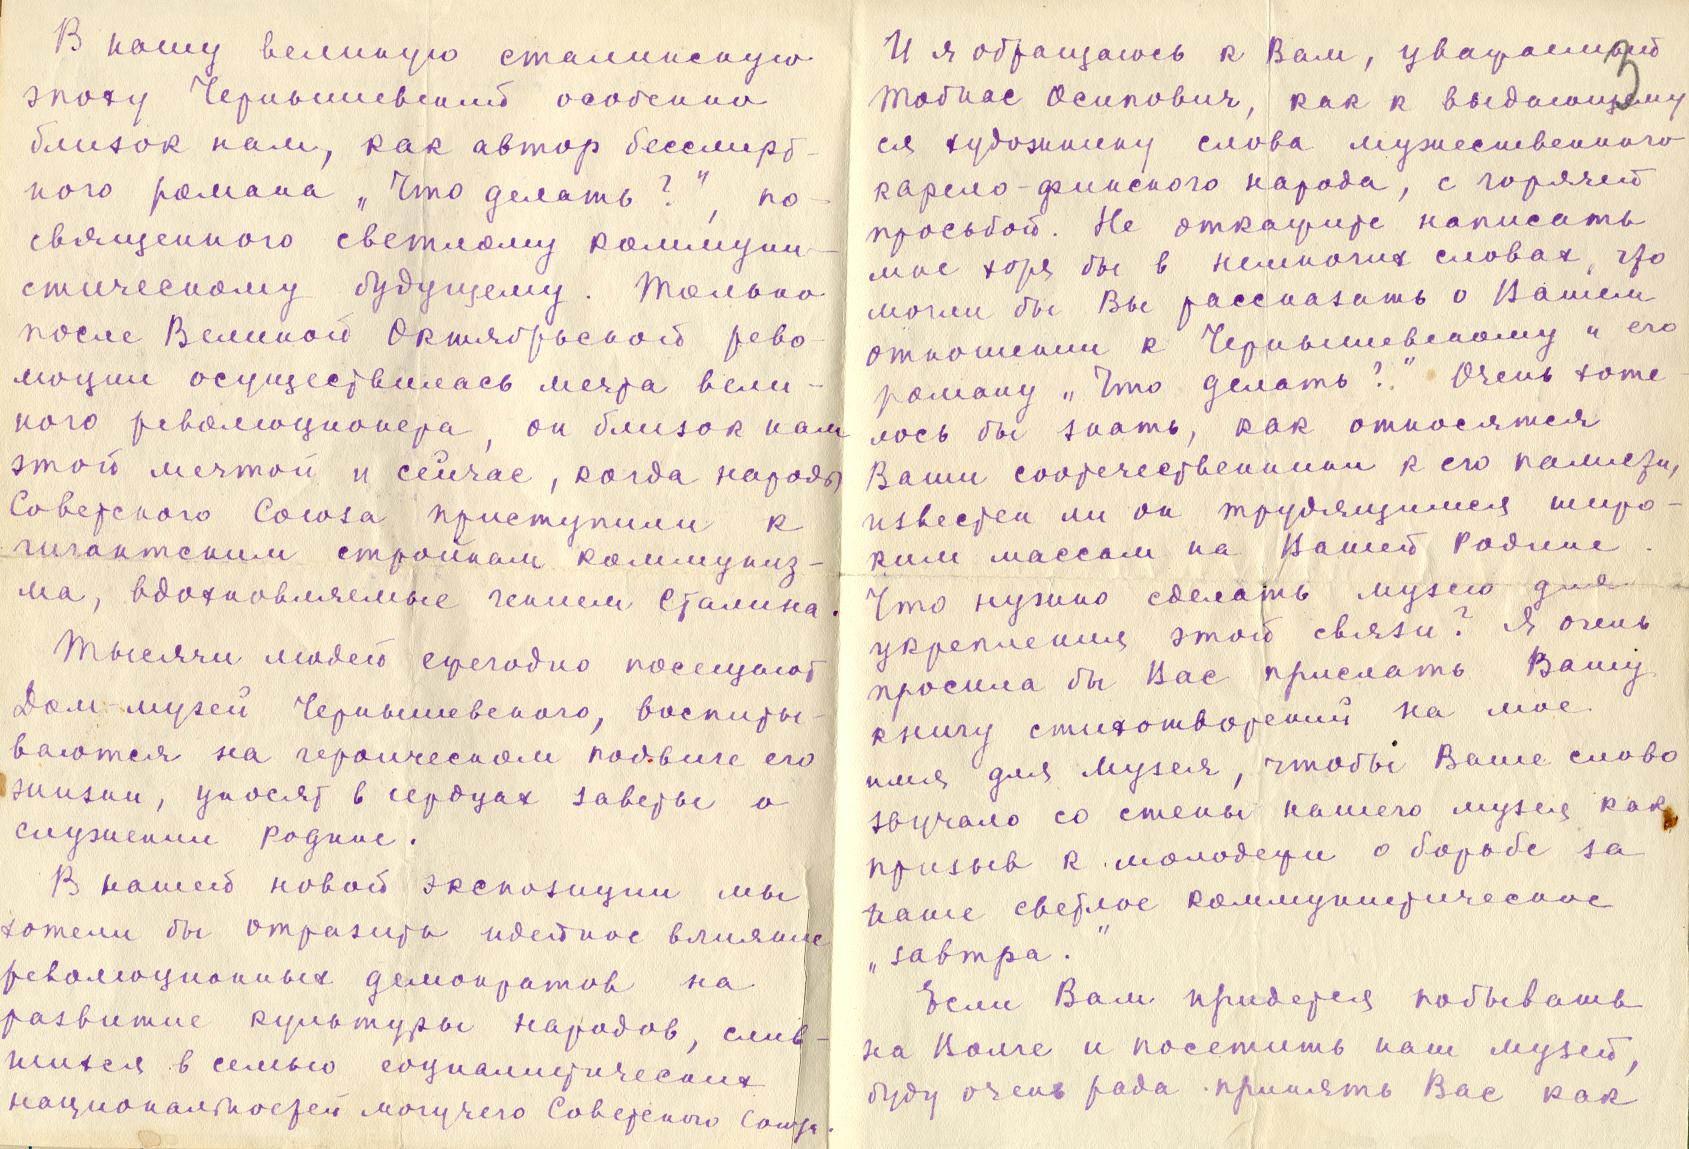 В нашу великую сталинскую
эпоху Чернышевский особенно
близок нам, как автор бессмерт-
ного романа „Что делать?", по-
священного светлому коммуни-
стическому будущему. Только
после Великой Октябрьской рево-
люции осуществилась мечта вели-
кого революционера, он близок нам
этой мечтой и сейчас, когда народы
Советского Союза приступили к
гигантским стройкам коммуниз-
ма, вдохновляемые гением Сталина.
Тысячи людей ежегодно посещают
Дом-музей Чернышевского, воспиты-
ваются на героическом подвиге его
жизни, уносят в сердцах заветы о
служении родине.
В нашей новой экспозиции мы
хотели бы отразить идейное влияние
революционных демократов на
развитие культуры народов, слив-
шихся в семью социалистических
национальностей могучего Советского Союза.
3
И я обращаюсь к Вам, уважаемый
Тобиас Осипович, как к выдающему
ся художнику слова мужественного
карело-финского народа, с горячей
просьбой. Не откажите написать
мне хотя бы в немногих словах, что
могли бы Вы рассказать о Вашем
отношении к Чернышевскому и его
роману „Что делать?." Очень хоте-
лось бы знать, как относятся
Ваши соотечественники к его памяти,
известен ли он трудящимся широ-
ким массам на Вашей Родине.
Что нужно сделать музею для
укрепления этой связи? Я очень
просила бы Вас прислать Вашу
книгу стихотворений на мое
имя для музея, чтобы Ваше слово
звучало со стены нашего музея как
призыв к молодежи о борьбе за
наше светлое коммунистическое
„завтра."
Если Вам придется побывать
на Волге и посетить наш музей,
буду очень рада принять Вас как